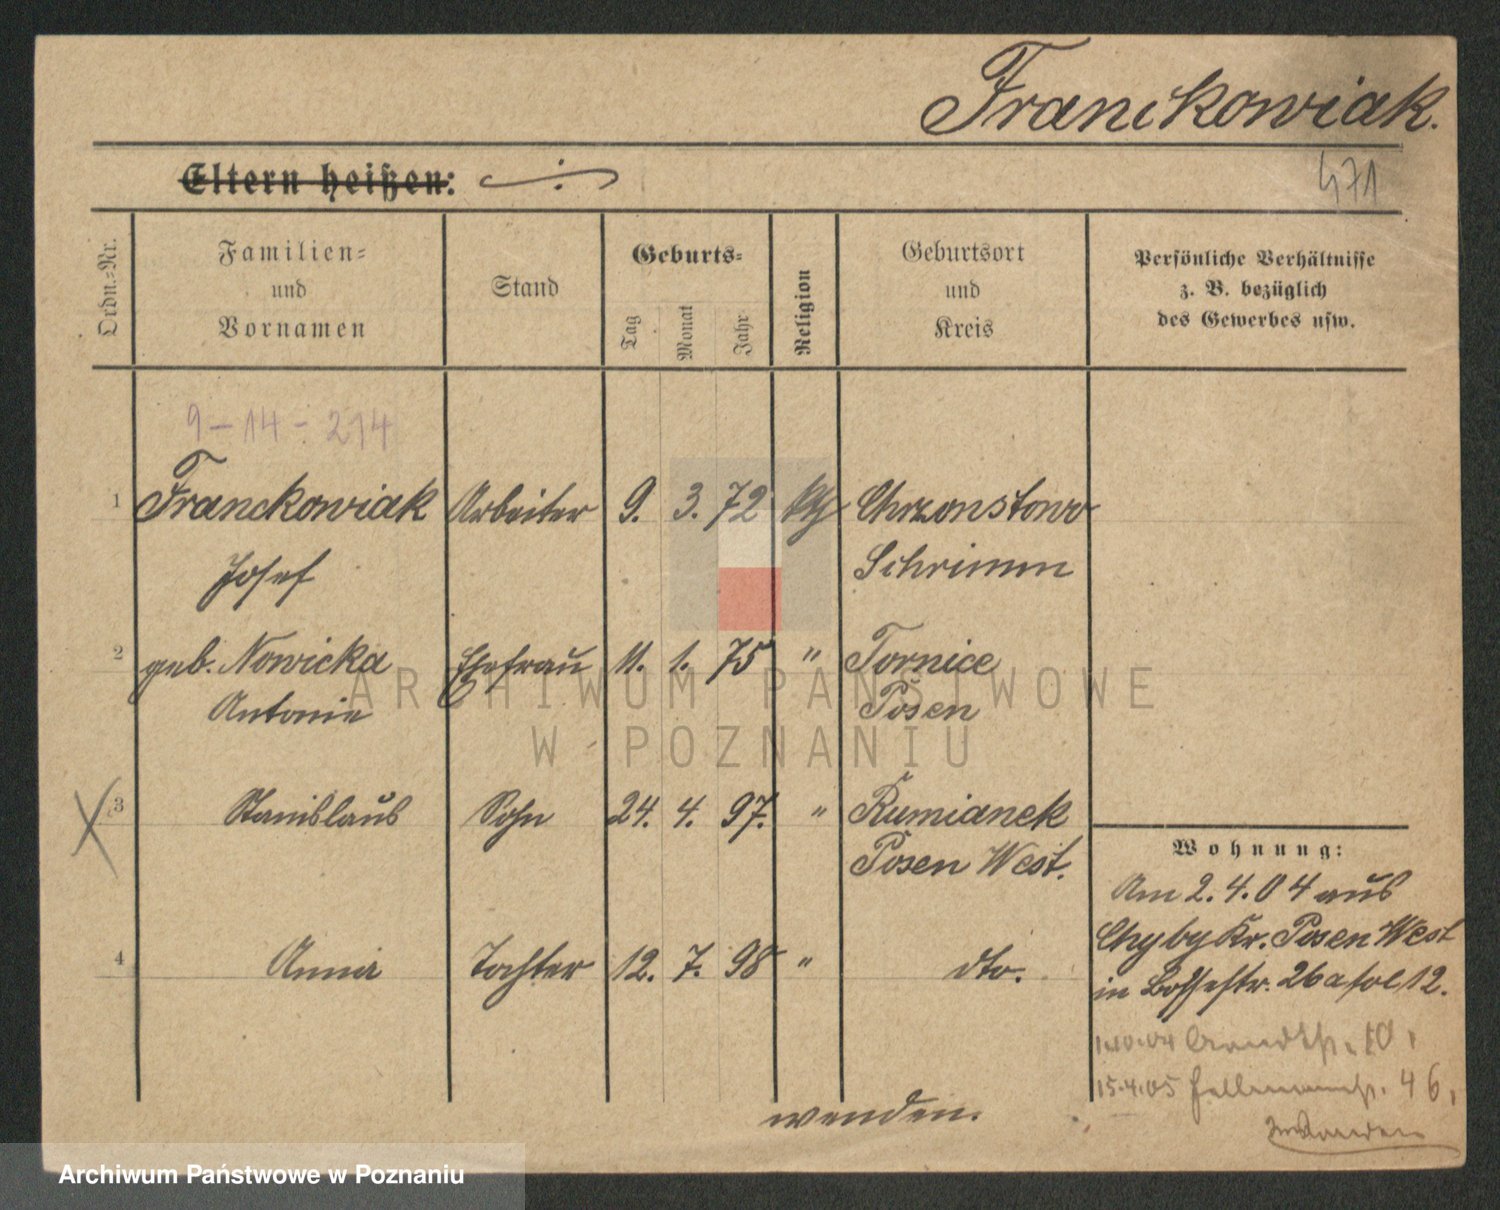 Franckowiak.
471
Eltern heißen:
Ordn.-Nr.
Familien-
und
Vornamen
Stand
Geburts-
Tag
Monat
Jahr
Religion
Geburtsort
und
Kreis
Persönliche Verhältnisse
z. B. bezüglich
des Gewerbes usw.
9-14-214
1 Franckowiak Arbeiter 9. 3. 72 kth Chrzonstowo
Josef Schrimm
2 geb. Nowicka Ehefrau 11. 1. 75 " Tornice
Antonie Posen
3 Stanislaus Sohn 24. 4. 97. " Rumianek
Posen West.
4 Anna Tochter 12. 7. 98 " dto.
Wohnung:
Am 2.4.04 aus
Chyby Kr. Posen West
in Bossestr. 26a fol 12.
1.10.04 Arndtstr. 10.
15.4.05 46.
wenden.
ARCHIWUM PAŃSTWOWE
W POZNANIU
Archiwum Państwowe w Poznaniu